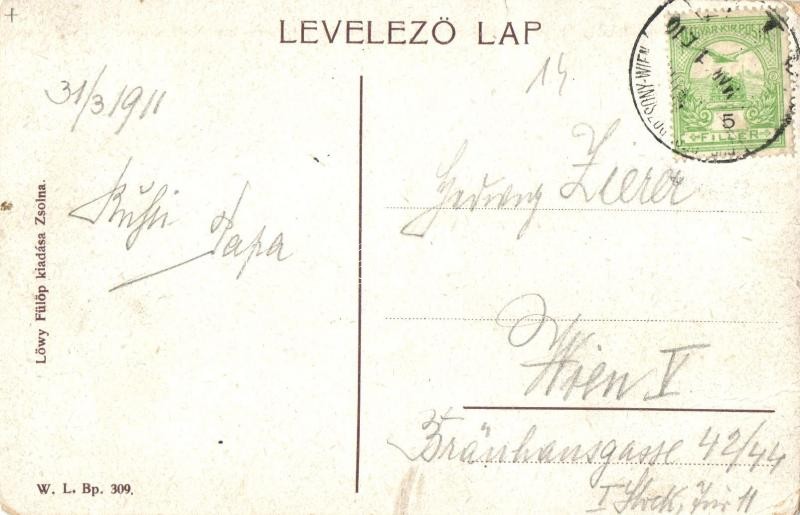 LEVELEZŐ LAP
31/3 1911
14
Papa
Hedwig Zierer
Wien V
Bräuhausgasse 42/44
I Stock, Tür 11
MAGYAR KIR. POSTA
5
FILLÉR
POZSONY-WIEN
Lőwy Fülöp kiadása Zsolna.
W. L. Bp. 309.